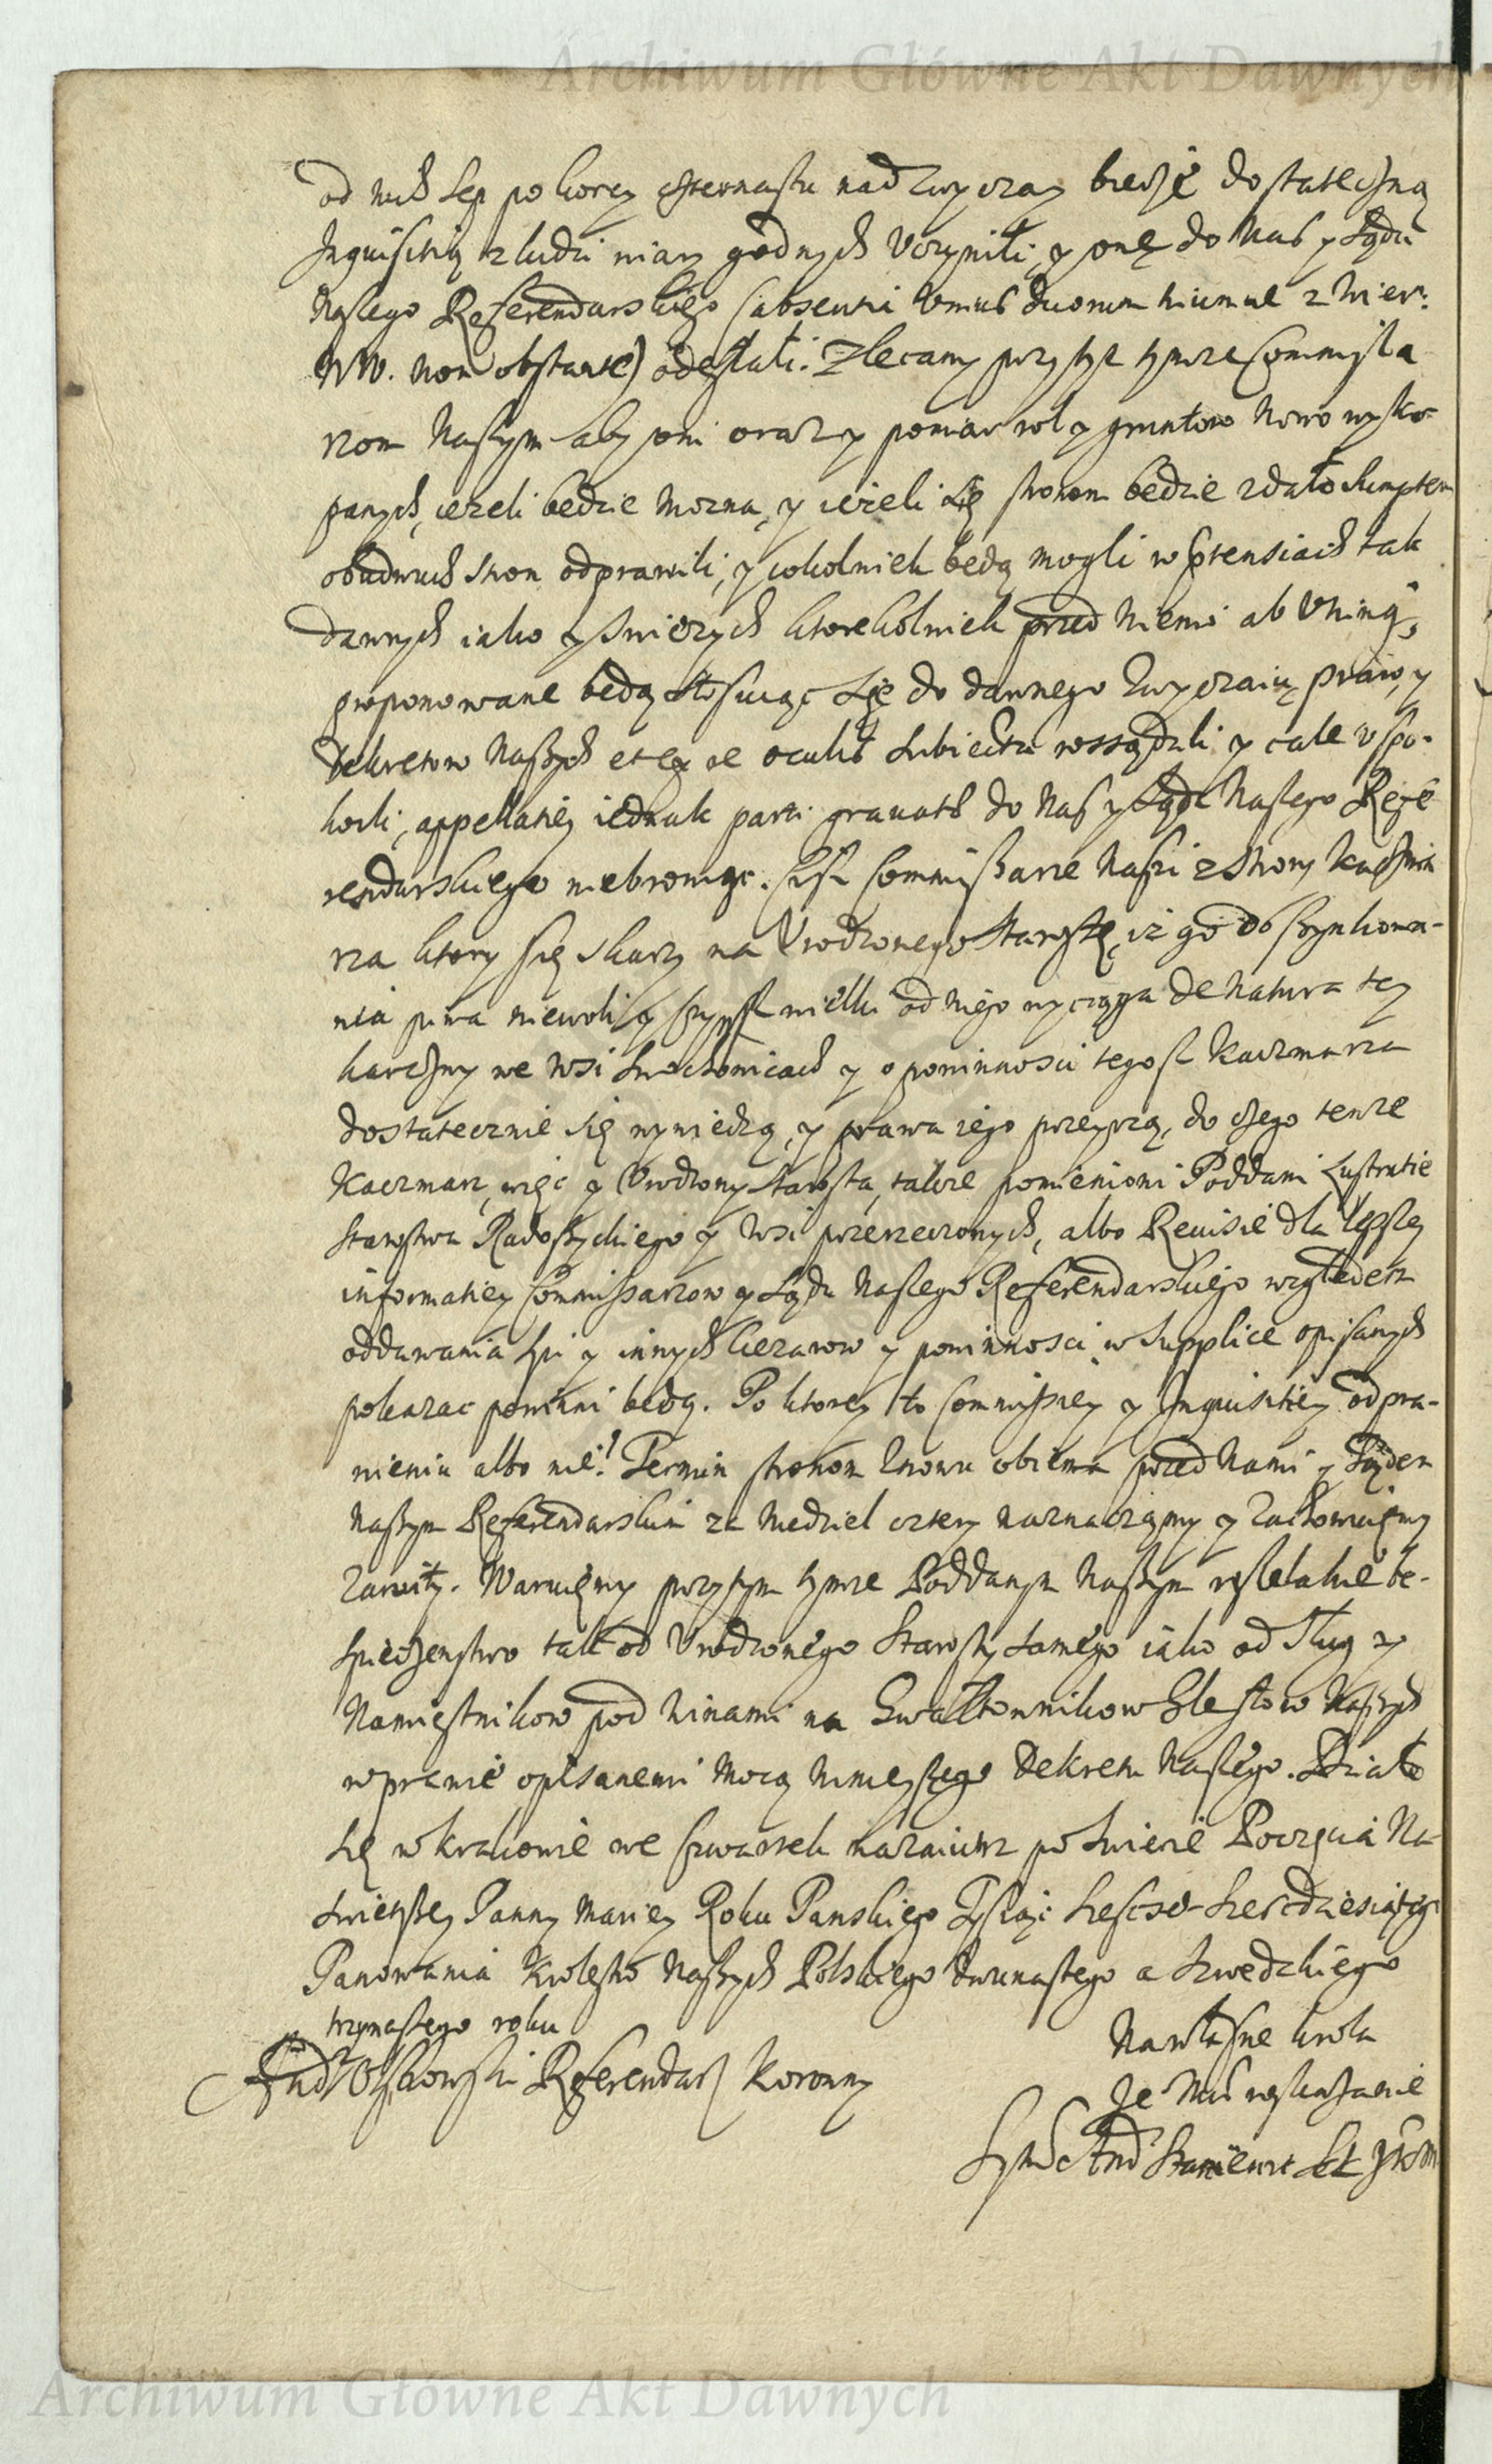 Archiwum Główne Akt Dawnych
od nich sep po korcy czternastu nad zwyczay bierze dostateczną
Inquisitią z ludzi wiary godnych uczynili, y onę do Nas y Sądu
Naszego Referendarskiego (absentia unius duorum
non obstante) odesłali. Zlecamy przy tym tymże Commissa
rzom Naszym aby oni oraz y pomiar rol y gruntow nowo wyko
panych, ieżeli będzie można, y ieżeli się stronom będzie zdało sumptem
obudwuch stron odprawili, y cokolwiek będą mogli w praetensiach tak
dawnych iako y swieżych ktorekolwiek przed niemi ab utrinq
proponowane będą stosuiąc się do dawnego zwyczaiu, praw, y
dekretow Naszych et ex re oculis subiecta rossądzili y cale uspo-
koili, appellatiey iednak parti gravatae do Nas y Sądu Naszego Refe
rendarskiego niebroniąc. Ciż Commissarze Naszi z strony Kaczma
rza ktory się skarży na Urodzonego Starostę, iż go do szynkowa-
nia piwa niewoli y czynsz wielki od niego wyciąga de natura tey
karczmy we wsi y o powinnosci tegosz Kaczmarza
dostatecznie się wywiedzą, y prawa iego przeyrzą, do czego tenże
Kaczmarz, więc y Urodzony Starosta, także pomienioni Poddani Lustratie
Starostwa Radoszyckiego y wsi przerzeczonych, albo Revisie dla lepszey
informatiey Commissarzow y Sądu Naszego Referendarskiego względem
oddawania spi y innych ciężarow y powinnosci w supplice opisanych
pokazac powinni będą. Po ktorey to Commissiey y Inquisitiey odpra-
wieniu albo nie? Termin stronom znowu obiema przed Nami y Sądem
Naszym Referendarskim za niedziel cztery naznaczamy y zachowuiemy
zawity. Waruiemy przytym tymże Poddanym Naszym wszelakie be-
spieczenstwo tak od Urodzonego Starosty samego iako od sług y
Namiestnikow pod winami na Gwałtownikow Glestow Naszych
w prawie opisanemi mocą ninieyszego Dekretu Naszego. Działo
się w Krakowie we czwartek nazaiutrz po swięcie Poczęcia Na
swiętszey Panny Mariey Roku Panskiego Tysiąc szescset szescdziesiątego
Panowania Krolestw Naszych Polskiego dwunastego a Szwedzkiego
trzynastego roku
Na własne krola
And Olszowski Referendarz Koronny
Je Mci roskazanie
Archiwum Główne Akt Dawnych